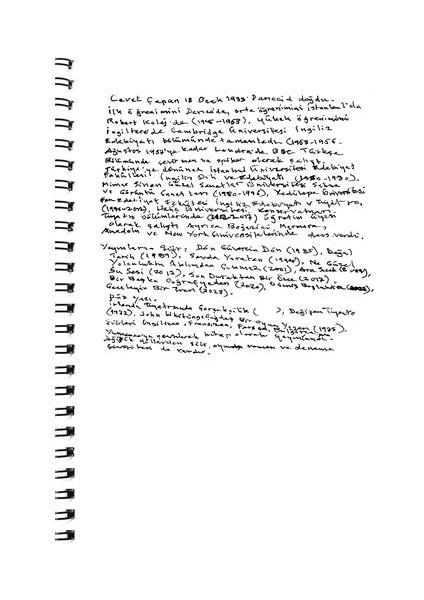 Cevat Çapan 18 Ocak 1933 Darıca'd doğdu.
İlk öğrenimini Darıca'da, orta öğrenimini İstanbul'da
Robert Kolej'de (1945-1953), yüksek öğrenimini
İngiltere'de Cambridge Üniversitesi İngiliz
Edebiyatı bölümünde tamamladı (1953-1956.
Ağustos 1957'ye kadar Londra'da BBC Türkçe
Bölümünde çevirmen ve spiker olarak çalıştı.
Türkiye'ye dönünce İstanbul Üniversitesi Edebiyat
Fakültesi İngiliz Dili ve Edebiyatı (1960-1980).
Mimar Sinan Güzel Sanatlar Üniversitesi Sahne
ve Görüntü Sanatları (1980-1996), Yeditepe Üniversitesi
Fen Edebiyat Fakültesi İngiliz Edebiyatı ve Tiyatro,
Haliç Üniversitesi Konservatuvarı
Tiyatro Bölümlerinde öğretim üyesi
olarak çalıştı. Ayrıca Boğaziçi, Marmara,
Anadolu ve New York üniversitelerinde ders verdi.
Yayınları: Şiir: Dön Güvercin Dön (1985), Doğal
Tarih (1989), Sevda Yaratan (1994), Ne Güzel
Yolculuktu Aklımdan Çıkmaz (2001), Ara Sıcak
Su Sesi (2012), Son Duraktan Bir Önce
Bir Başka Coğrafyadan (2020),
Geceleyin Bir Tren (2023).
Düz yazı:
İrlanda Tiyatrosunda Gerçekçilik ( ), Değişen Tiyatro
(1972), John Whiting: Çağdaş Bir Oyun Yazarı (1975).
Şiirleri İngilizce, Fransızca,
Yunancaya çevrilerek kitap olarak yayımlandı.
Değişik dillerden şiir, oyun, roman ve deneme
çevirileri de vardır.